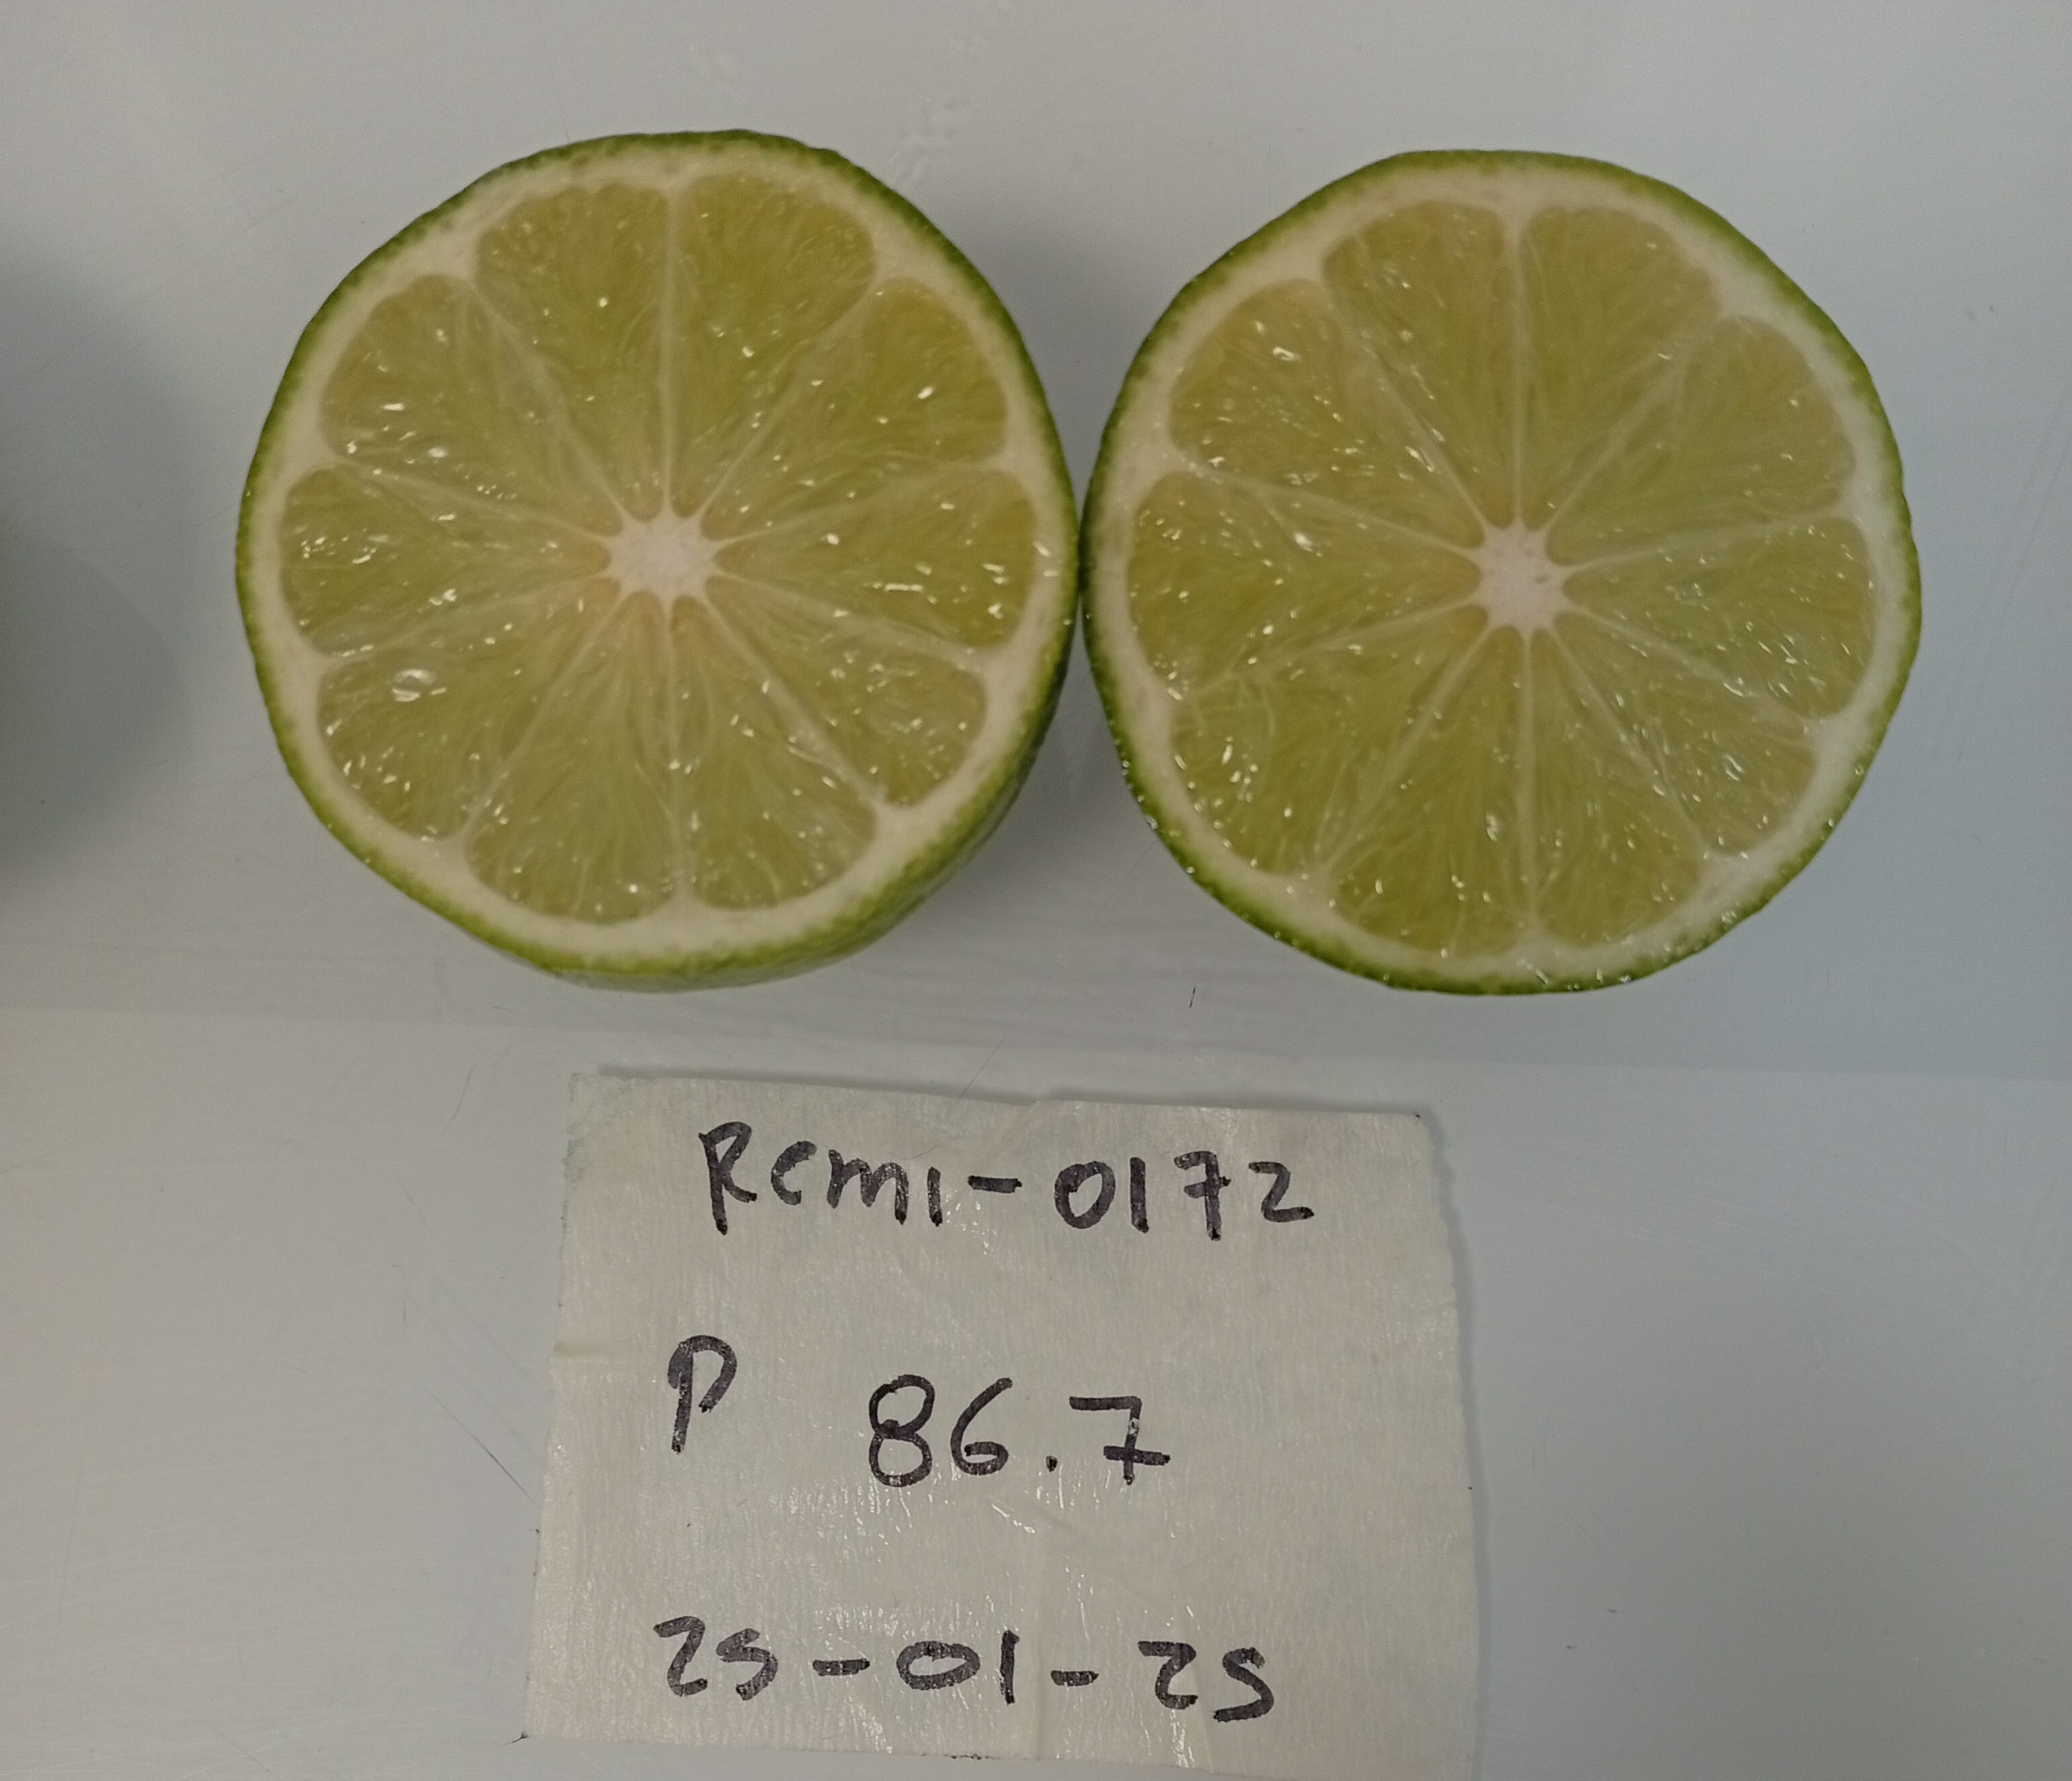 RCM1-0172
P 86.7
25-01-25